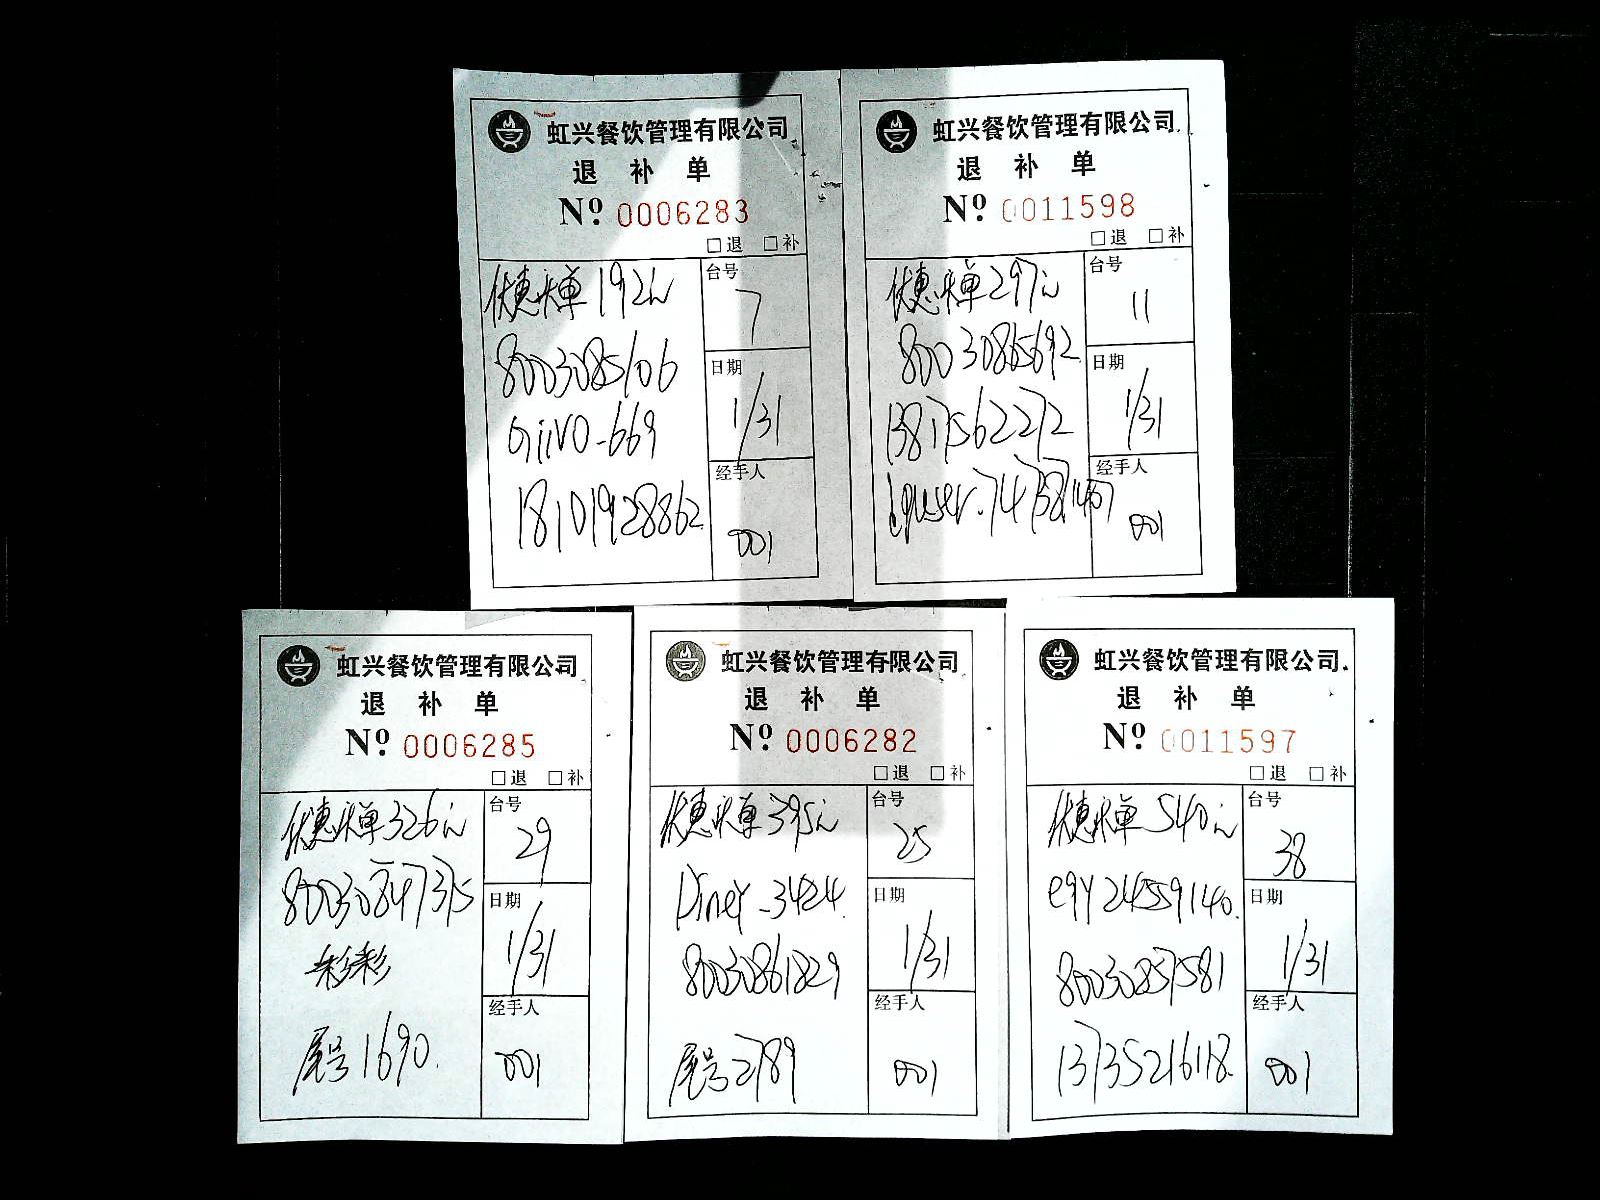 虹兴餐饮管理有限公司
退 补 单
№ 0006283
□退 □补
优惠买单192元
台号
7
8003085106
日期
1/31
GiiVO-669
经手人
18101928862
001
虹兴餐饮管理有限公司
退 补 单
№ 0011598
□退 □补
优惠买单297元
台号
11
80030865692
日期
1/31
13817562272
经手人
001
虹兴餐饮管理有限公司
退 补 单
№ 0006285
□退 □补
优惠买单326元
台号
29
日期
1/31
彩彩
经手人
尾号1690.
001
虹兴餐饮管理有限公司
退 补 单
№ 0006282
□退 □补
优惠买单395元
台号
25
Diney-3424.
日期
1/31
80030861829
经手人
尾号2789
001
虹兴餐饮管理有限公司.
退 补 单
№ 0011597
□退 □补
优惠买单540元
台号
38
egy24559140.
日期
1/31
80030857581
经手人
13735216118.
001